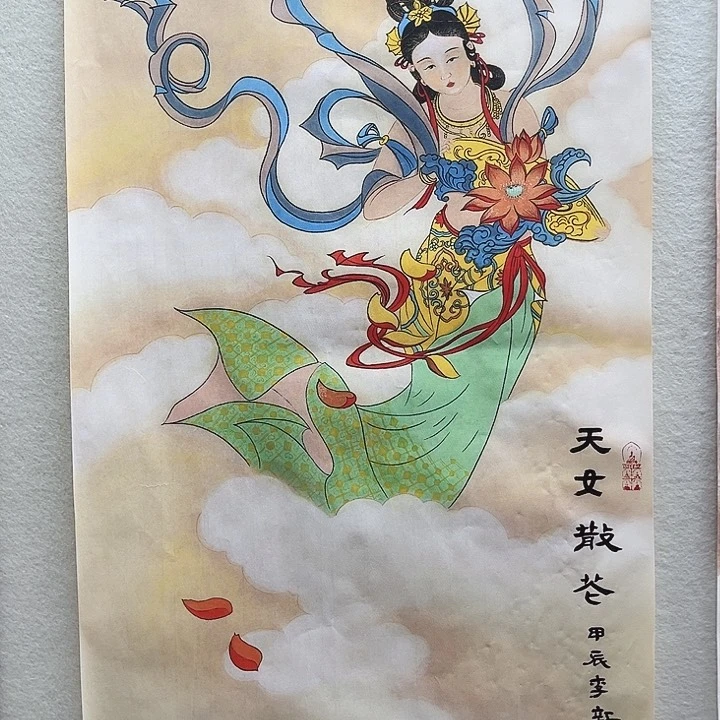 天女散花
甲辰李新